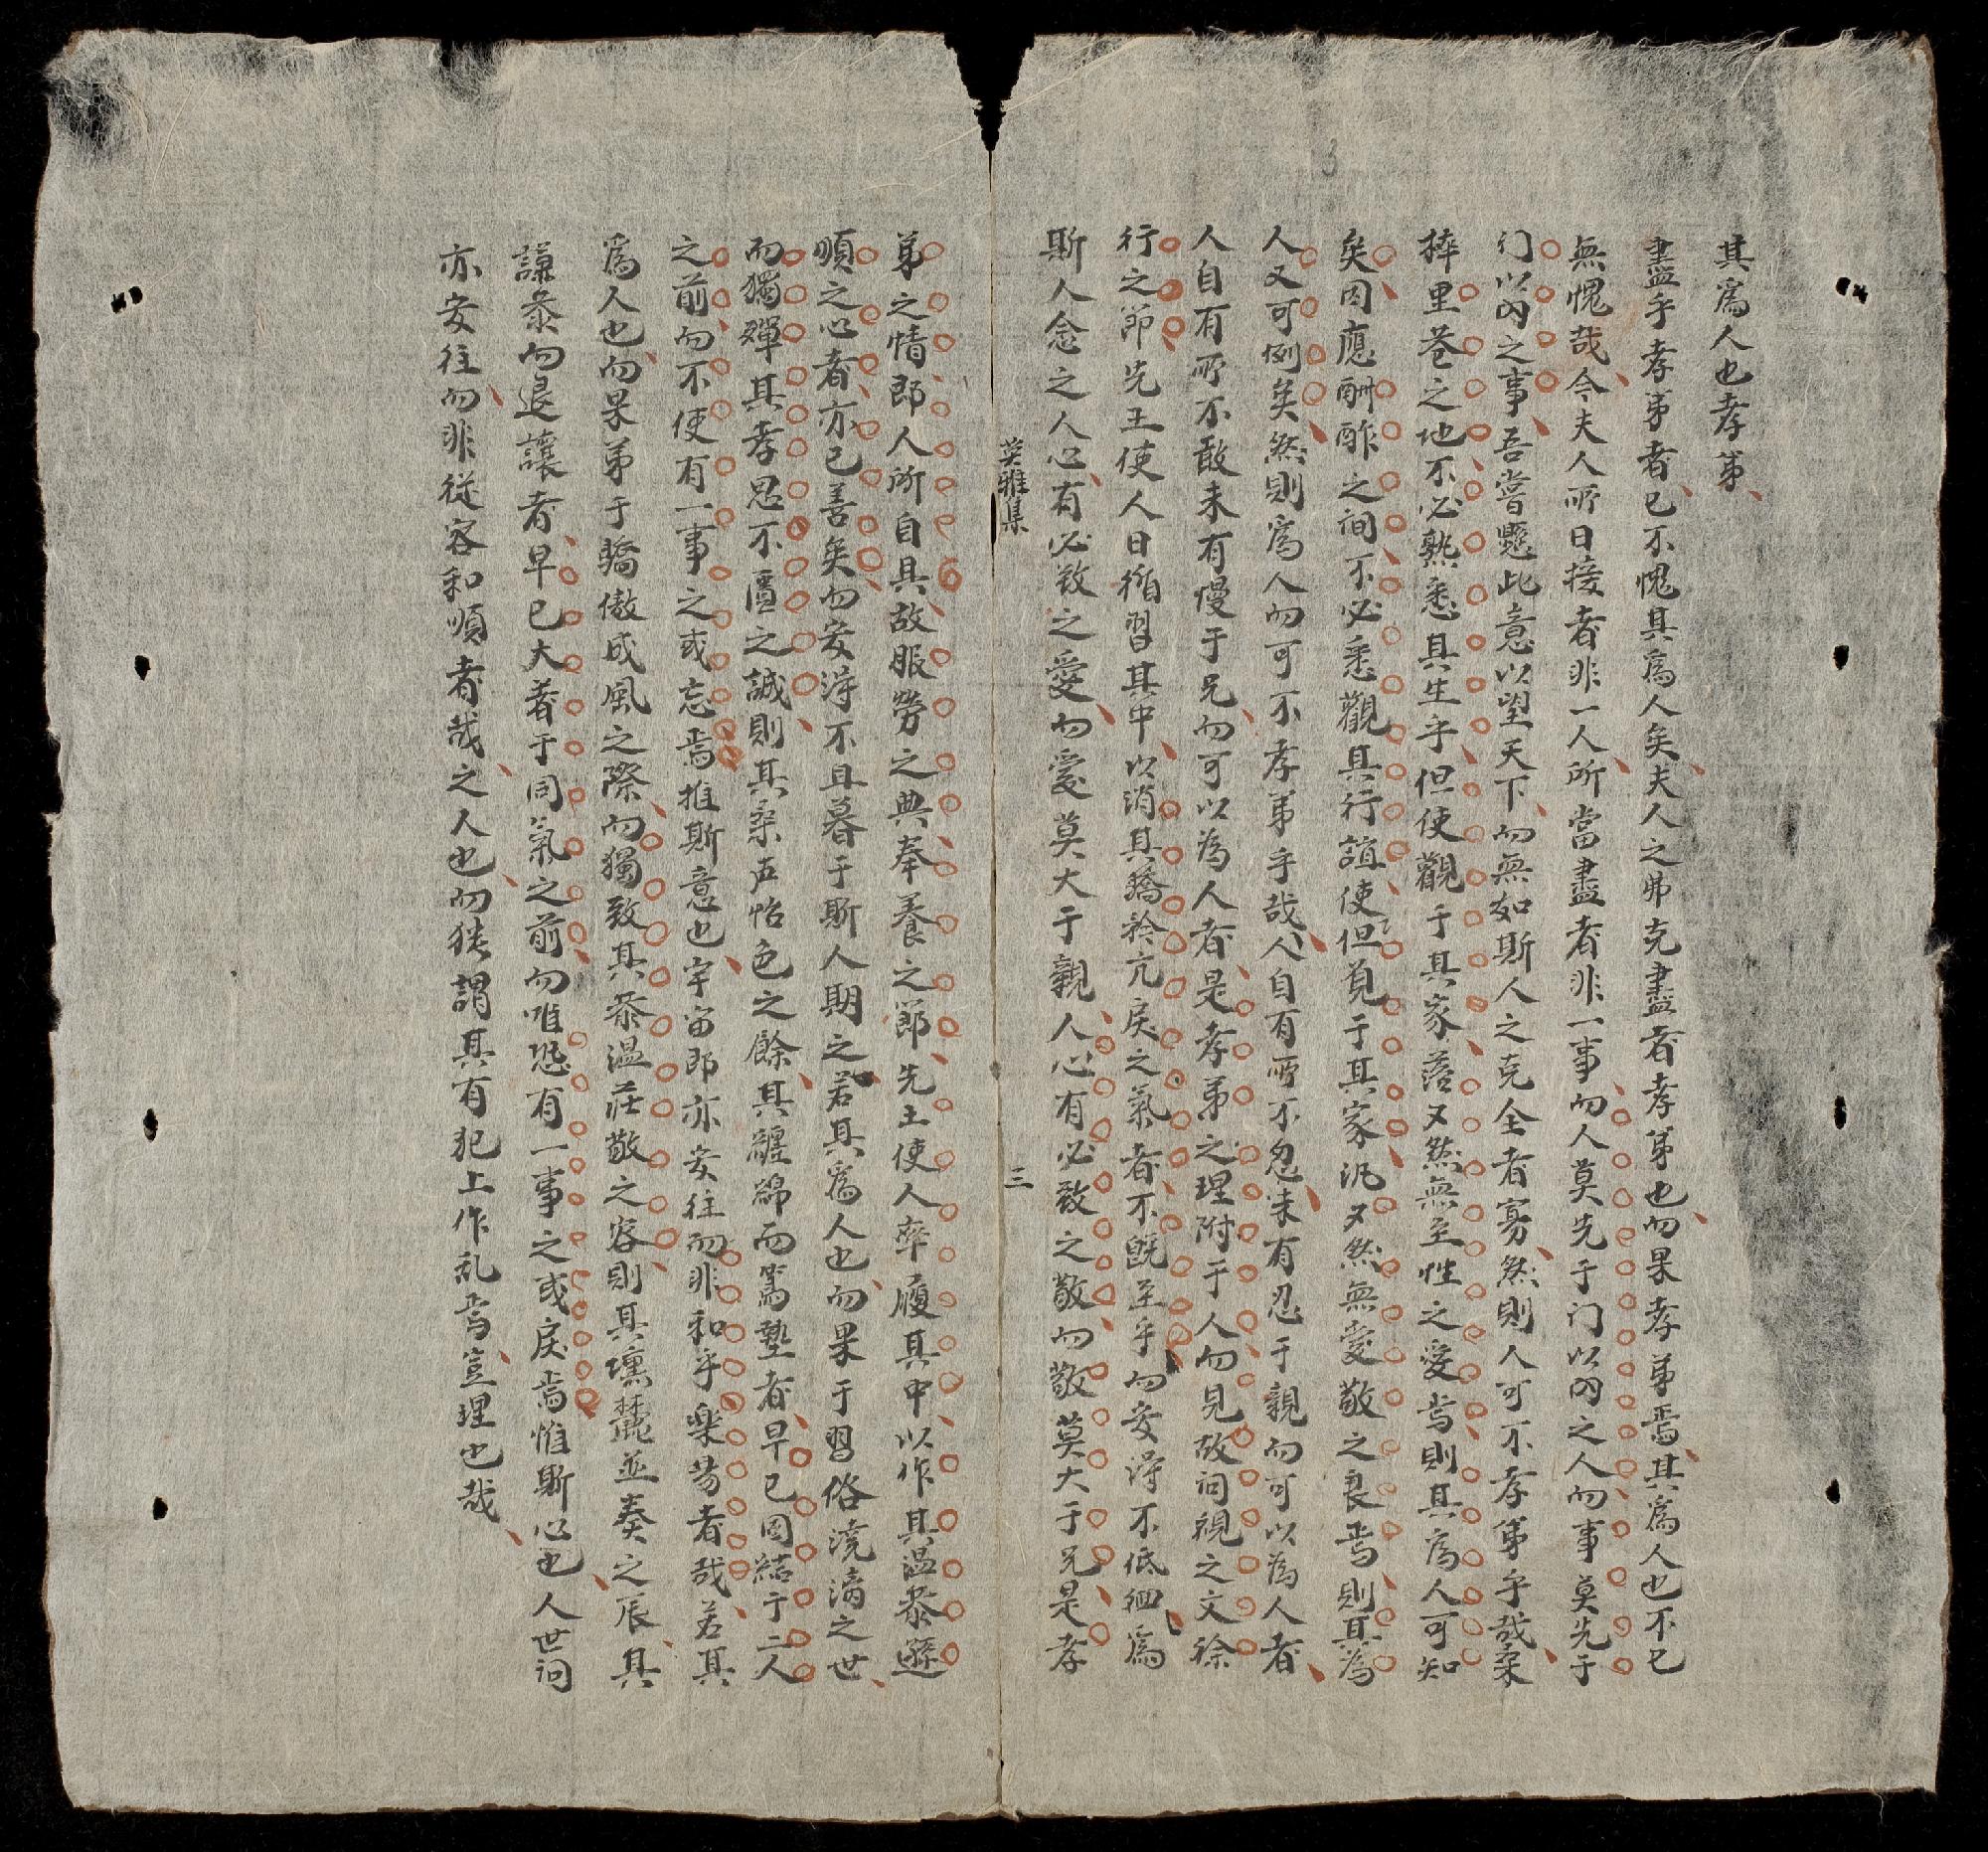 其爲人也孝弟
盡乎孝弟者已不愧其爲人矣夫人之弗克盡者孝弟也而果孝弟焉其爲人也不已
無愧哉今夫人所日接者非一人所當盡者非一事而人莫先于门以内之人而事莫先于
门以内之事吾嘗懸此意以望天下而無如斯人之克全者寡然則人可不孝弟乎哉桑
梓里巷之地不必熟悉其生乎但使觀于其家落又然無至性之愛焉則其爲人可知
矣因應酬酢之间不必悉觀其行誼使但見于其家汎又然無愛敬之良焉則其爲
人又可例矣然則爲人而可不孝弟乎哉人自有所不忍未有忍于親而可以為人者
人自有所不敢未有慢于兄而可以為人者是孝弟之理附于人而見故问視之文徐
行之節先王使人日循習其中以消其驕矜亢戾之氣者不既至乎而安得不低徊爲
斯人念之人心有必致之愛而愛莫大于親人心有必致之敬而敬莫大于兄是孝
英雅集
三
弟之情即人所自具故服勞之典奉養之節先王使人率履其中以作其温恭遜
順之心者亦已善矣而安得不旦暮于斯人期之若其爲人也而果于習俗澆漓之世
而獨殫其孝思不匱之誠則其柔声怡色之餘其纏綿而篤摯者早已固結于二人
之前而不使有一事之或忘焉推斯意也宇宙即亦安往而非和乎樂昜者哉若其
爲人也而果弟于驕傲成風之際而獨致其恭温莊敬之容則其壎箎並奏之辰其
謙恭而退讓者早已大著于同氣之前而唯恐有一事之或戾焉惟斯心也人世间
亦安往而非従容和順者哉之人也而犹謂其有犯上作乱焉豈理也哉